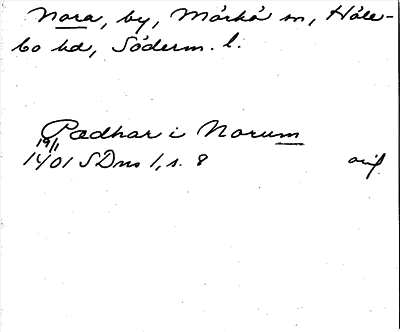 Nora, by, Mörkö sn, Höle-
bo hd, Söderm. l.
Pædhar i Norum
19/1
1401 SDns 1, s. 8 orig.